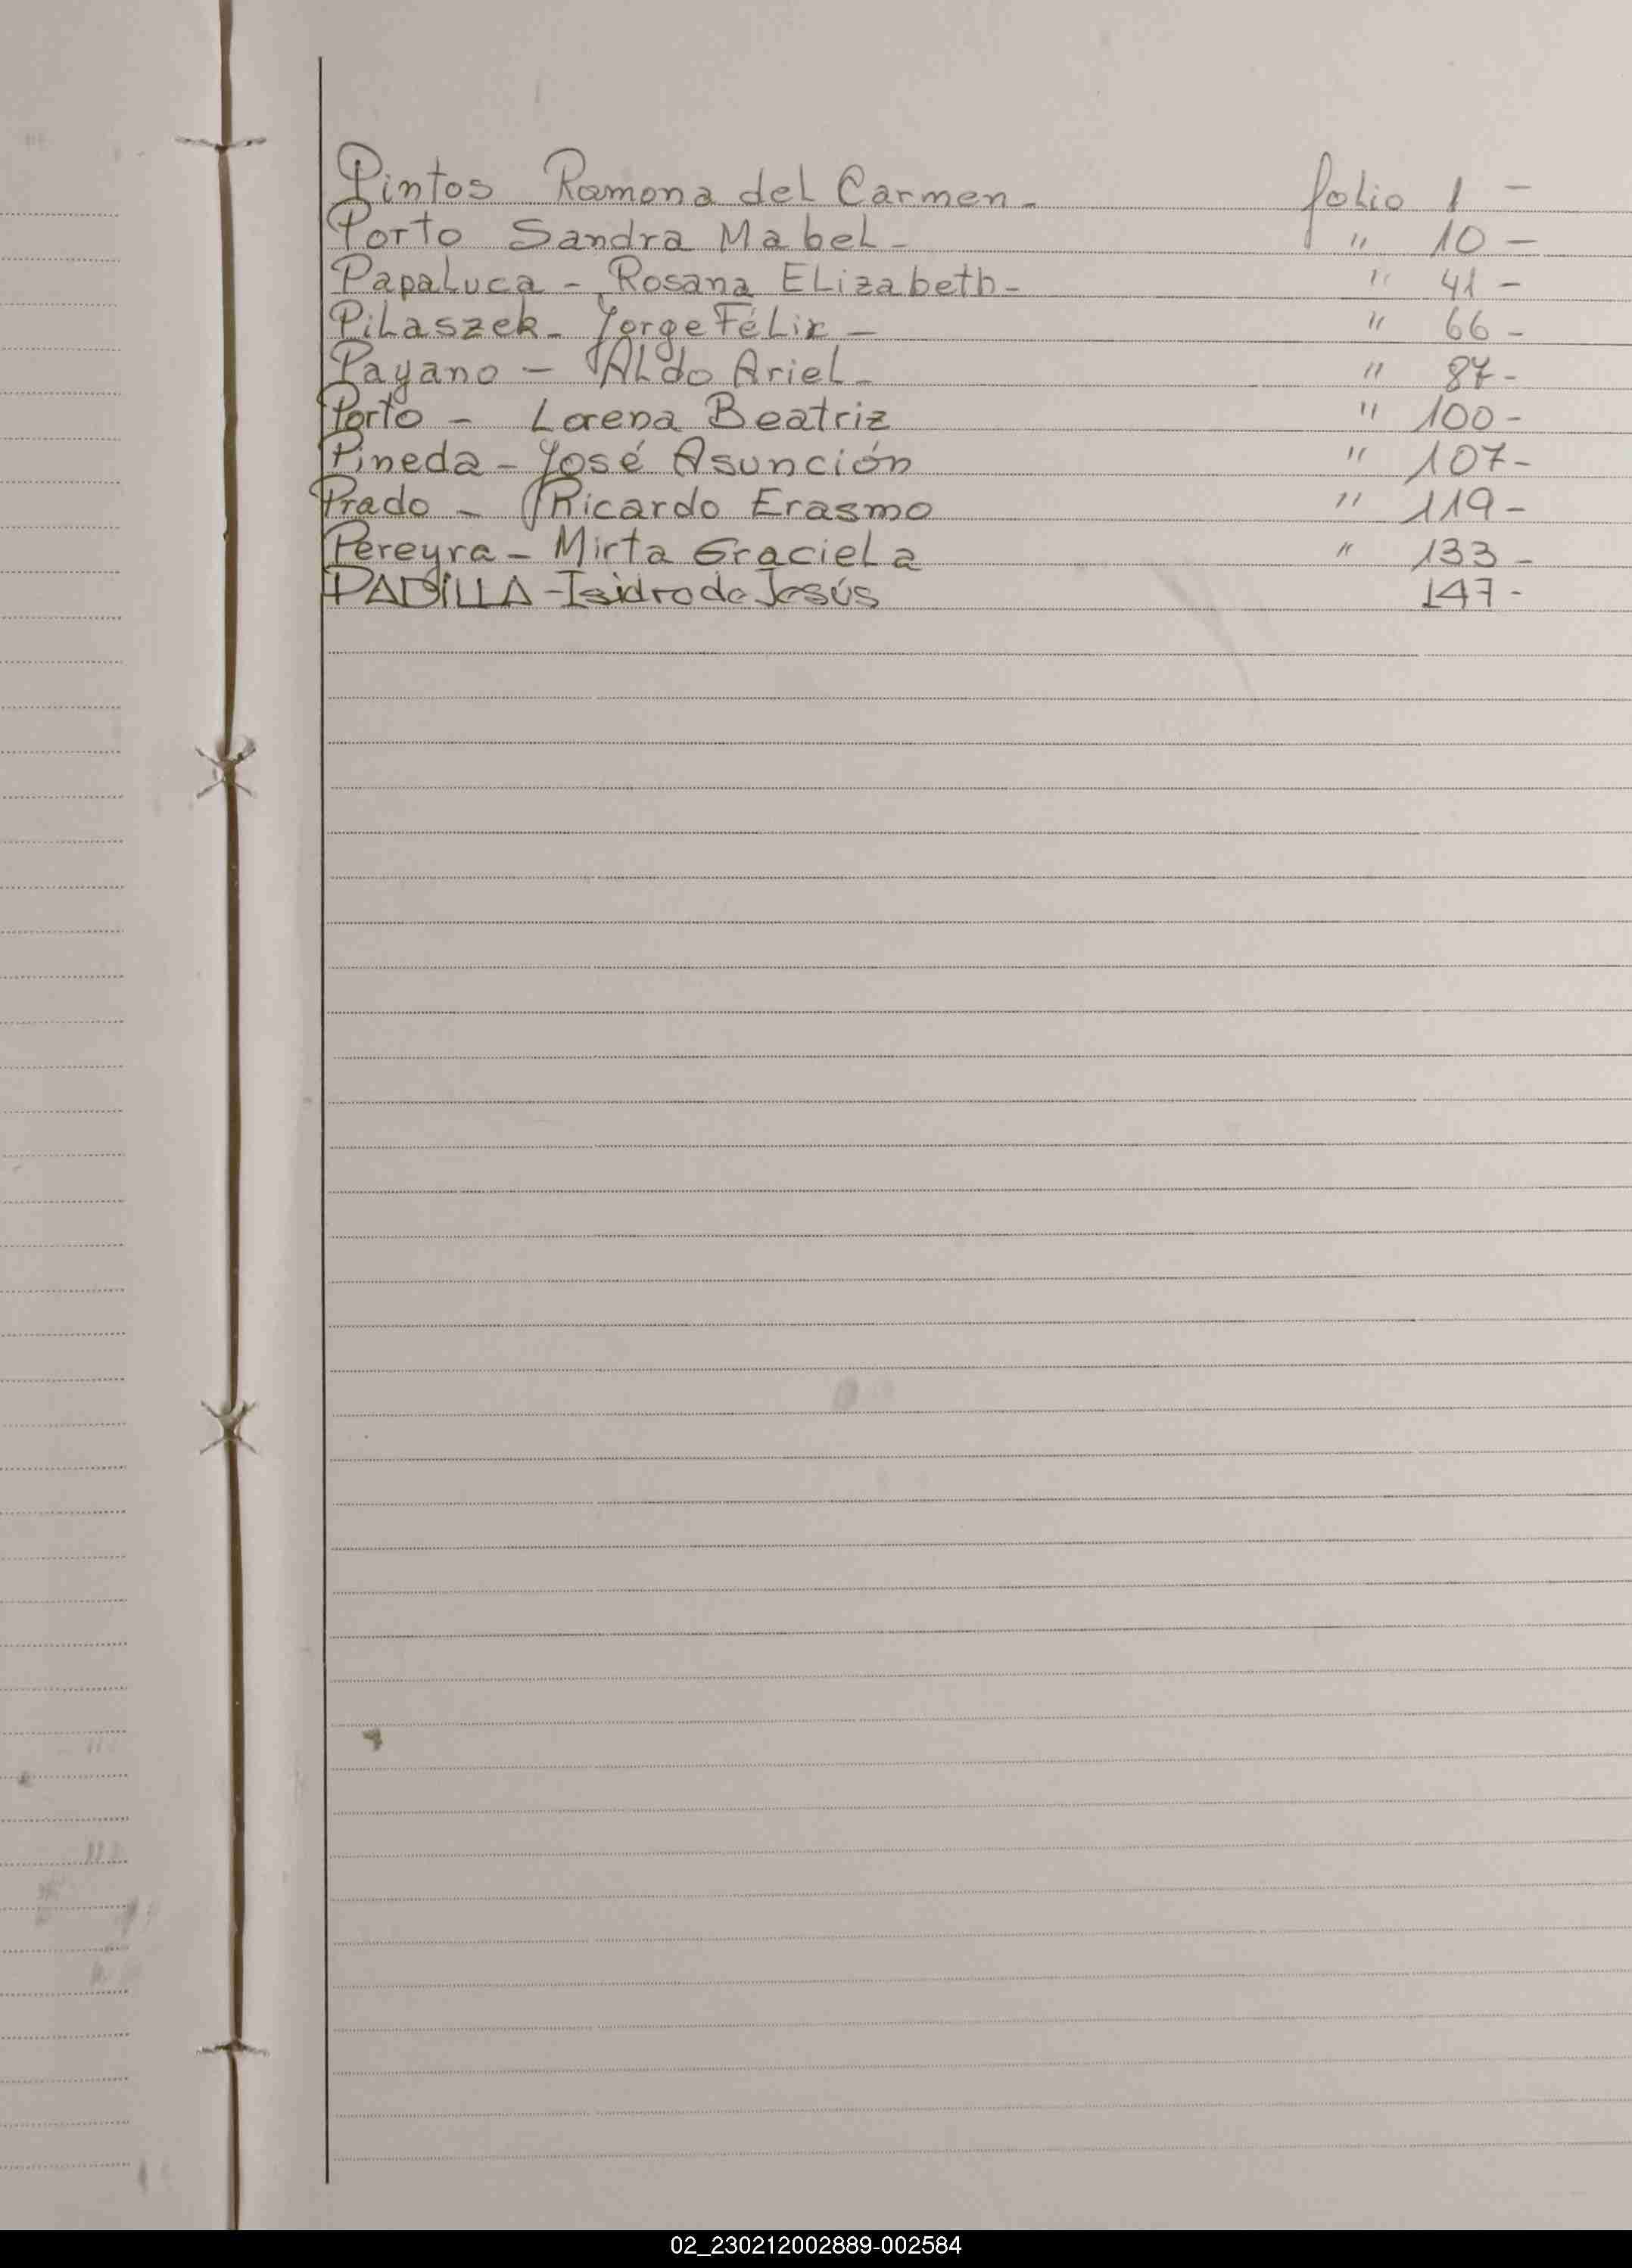 Pintos Ramona del Carmen - folio 1 -
Porto Sandra Mabel - " 10 -
Papaluca - Rosana Elizabeth - " 41 -
Pilaszek - Jorge Félix - " 66 -
Payano - Aldo Ariel - " 87 -
Porto - Lorena Beatriz " 100 -
Pineda - José Asunción " 107 -
Prado - Ricardo Erasmo " 119 -
Pereyra - Mirta Graciela " 133 -
PADiLLA - Isidro de Jesús 147 -
02_230212002889-002584